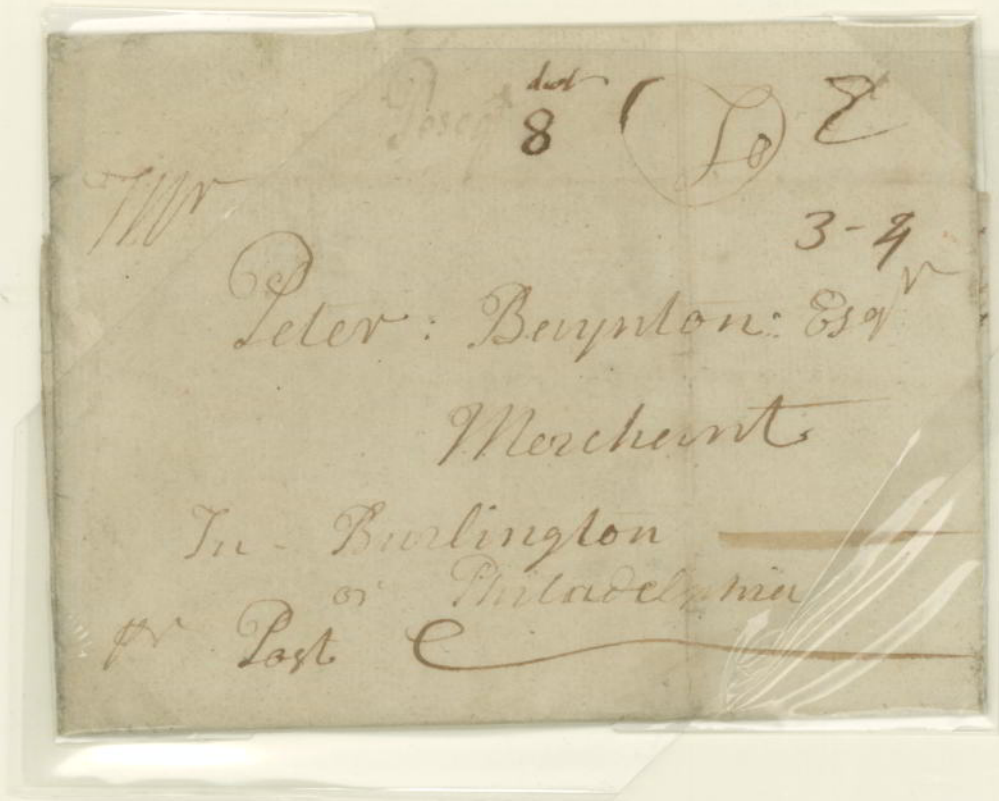 dwt
8
3-4
Mr
Peter: Baynton: Esqr
Merchant
In - Burlington
or Philadelphia
pr Post